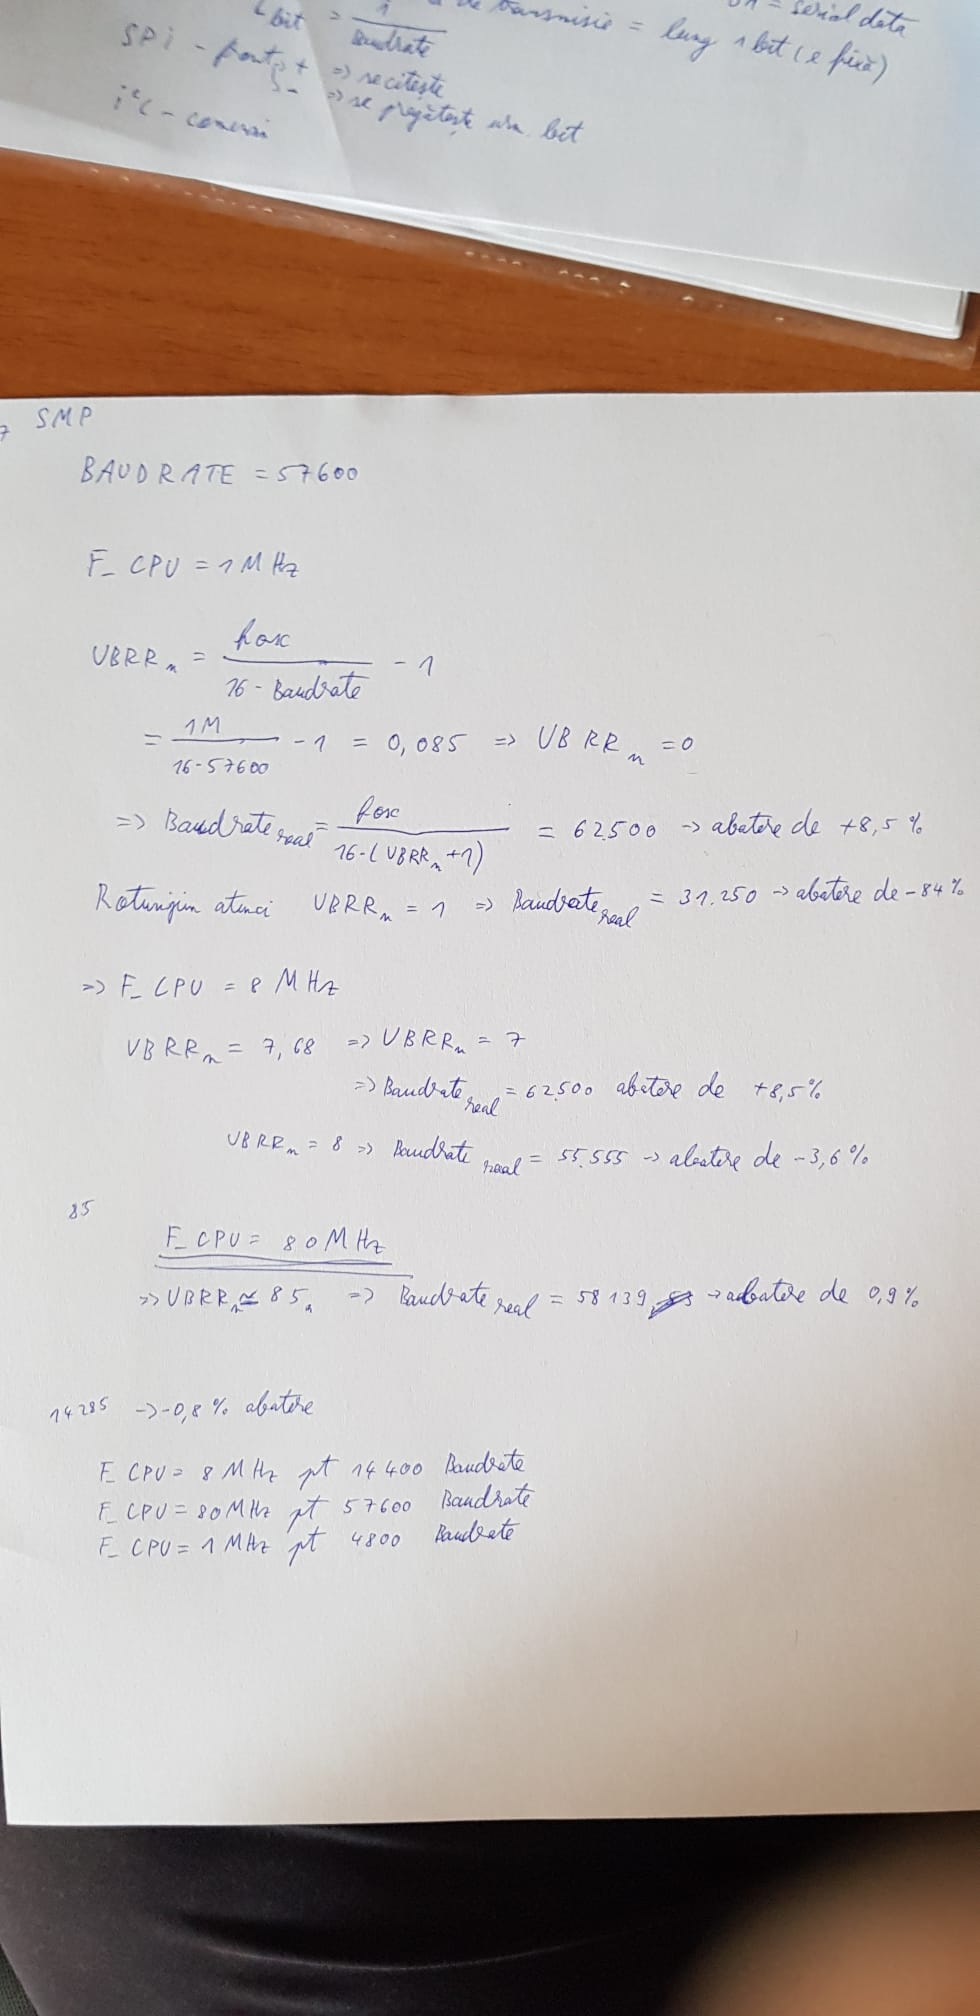 t bit = 1 / Baudrate
de transmisie = lung 1 bit (e fixă)
= serial data
SPi - front + => se citește
- => se pregătește urm. bit
i²C -
7 SMP
BAUDRATE = 57600
F_CPU = 1 MHz
UBRR n = fosc / 16 - Baudrate - 1
= 1M / 16-57600 - 1 = 0,085 => UBRR n = 0
=> Baudrate real = fosc / 16-(UBRR n +1) = 62500 -> abatere de +8,5 %
Rotunjim atunci UBRR n = 1 => Baudrate real = 31.250 -> abatere de -84%
=> F_CPU = 8 MHz
UBRR n = 7,68 => UBRR n = 7
=> Baudrate real = 62500 abatere de +8,5%
UBRR n = 8 => Baudrate real = 55.555 -> abatere de -3,6 %
85
F_CPU = 80 MHz
=> UBRR n ≃ 85 => Baudrate real = 58139 -> abatere de 0,9 %
14285 -> -0,8 % abatere
F_CPU = 8 MHz pt 14400 Baudrate
F_CPU = 80 MHz pt 57600 Baudrate
F_CPU = 1 MHz pt 4800 Baudrate